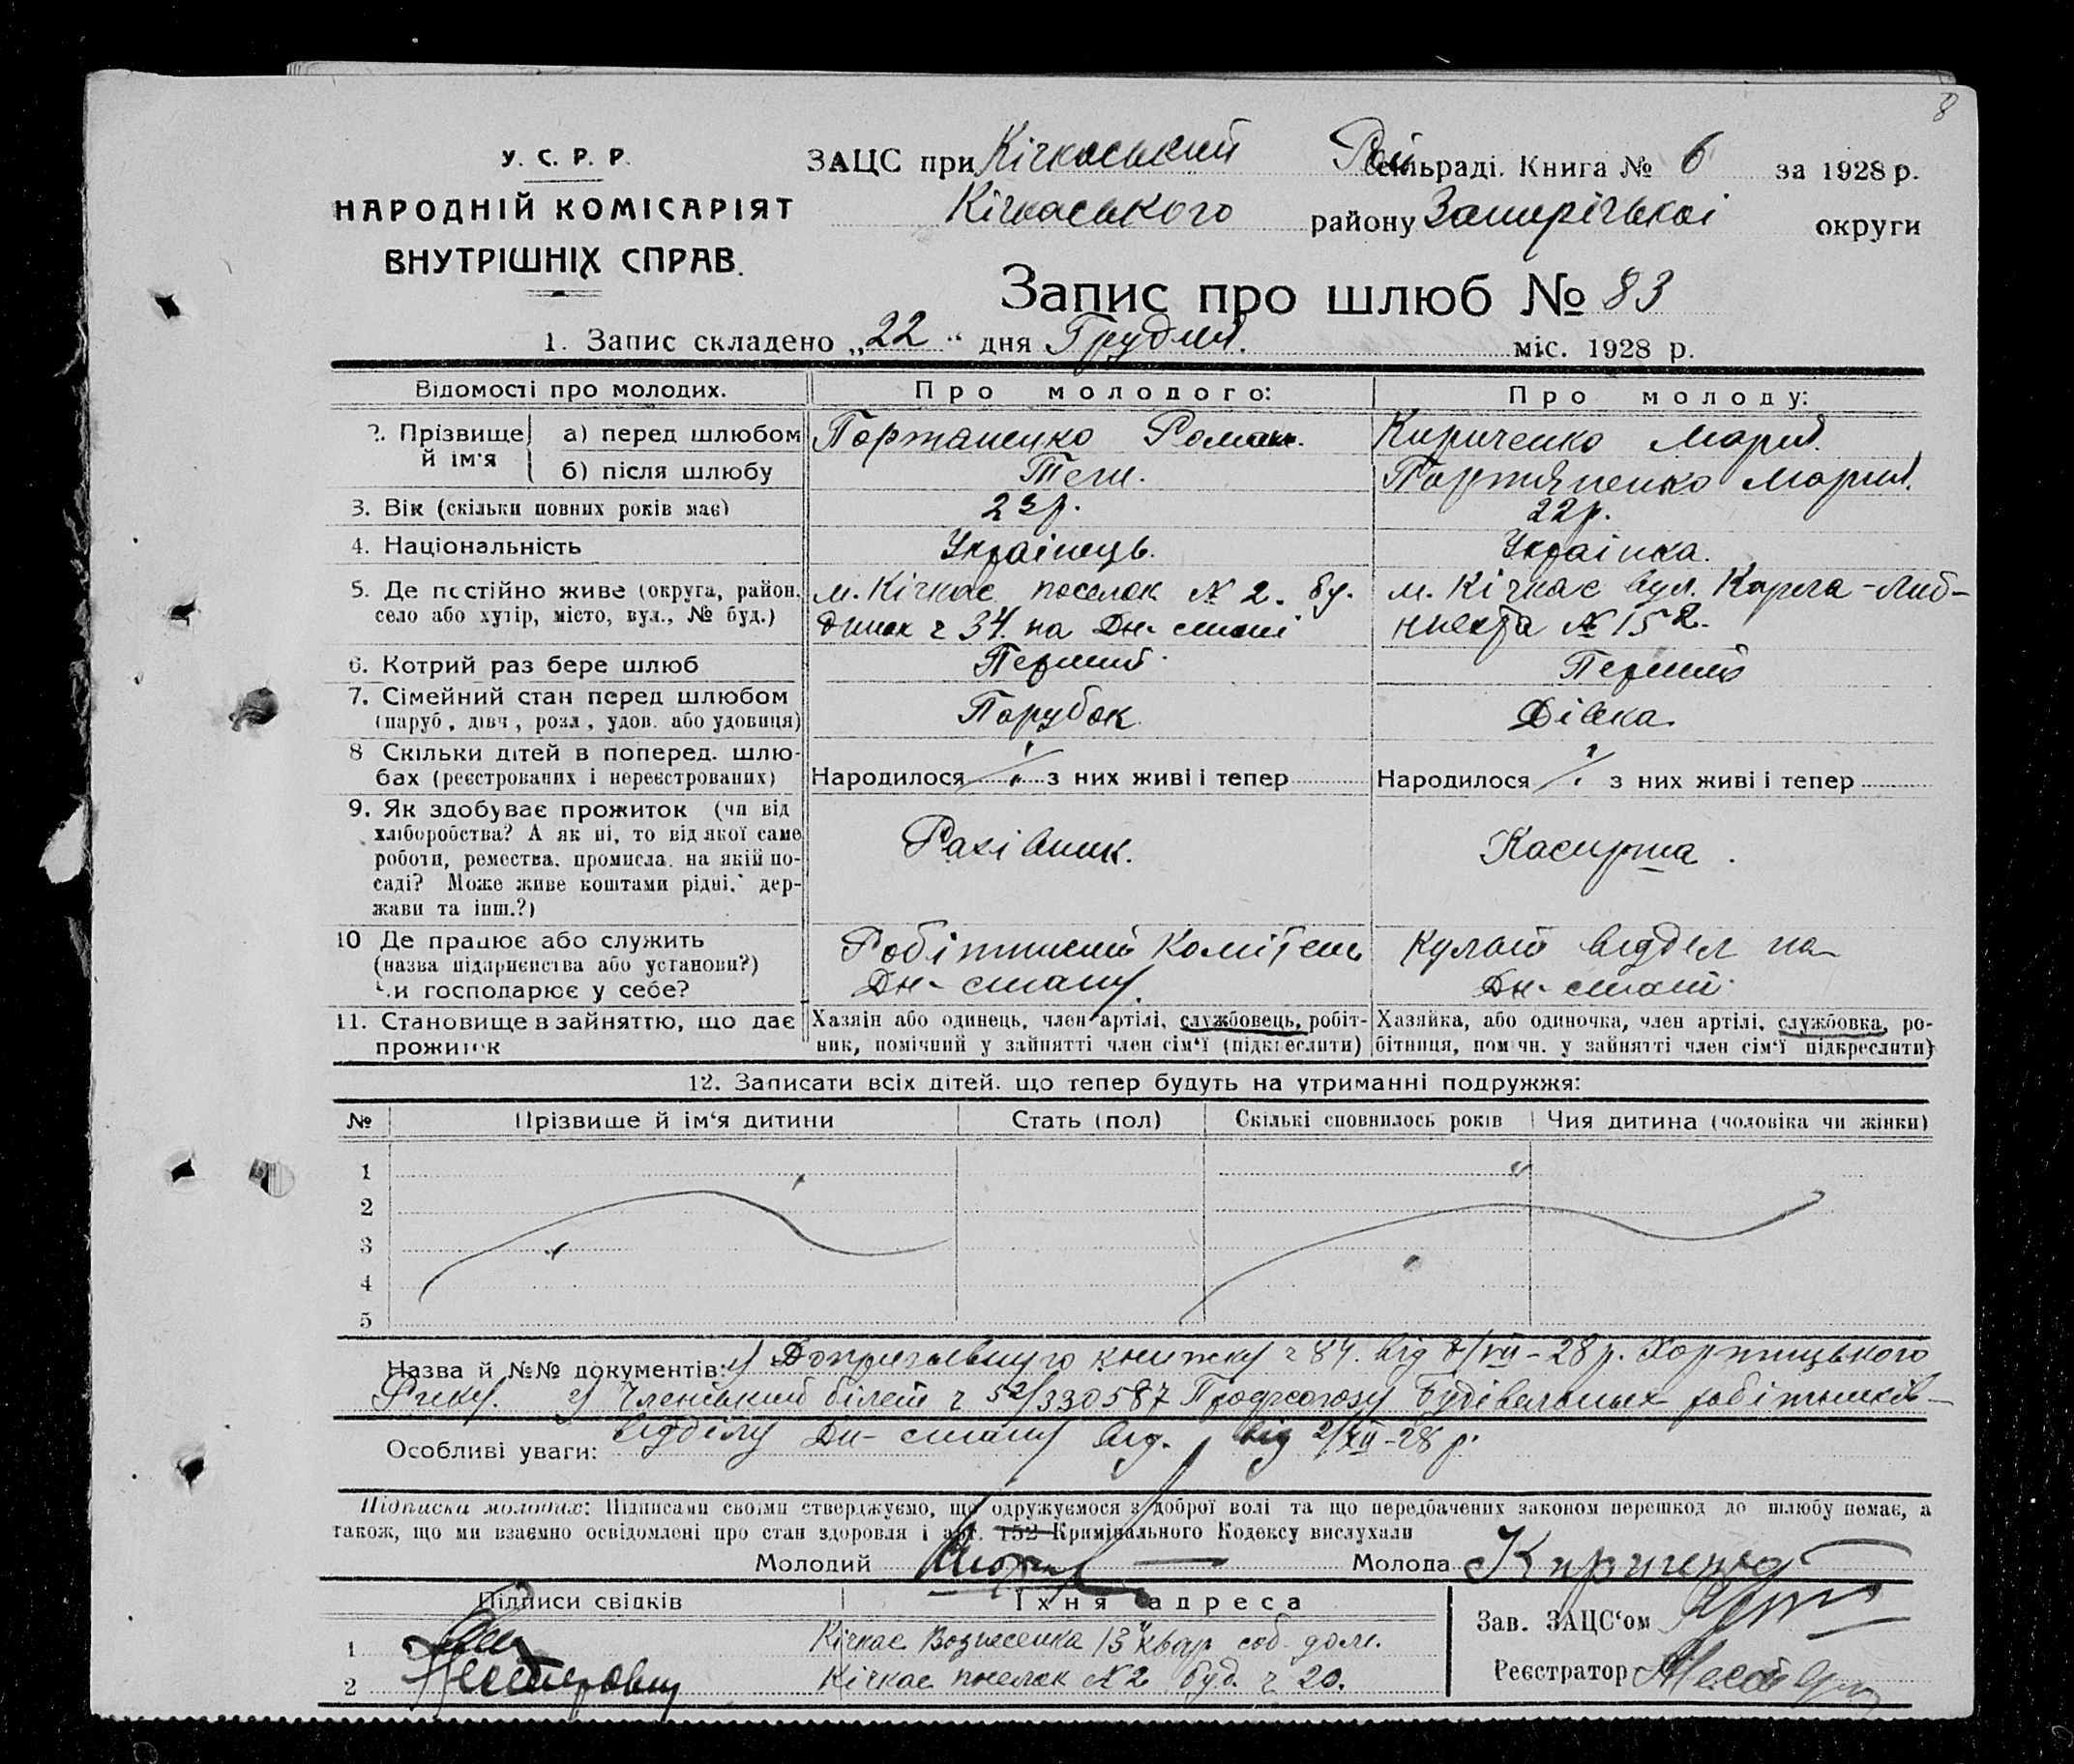 8
У. С. Р. Р.
НАРОДНІЙ КОМІСАРІЯТ
ВНУТРІШНІХ СПРАВ.
ЗАЦС при Кічкаський Рай сільраді. Книга № 6 за 1928 р.
Кічкаського району Запоріської округи
Запис про шлюб № 83
1. Запис складено „22“ дня Грудня. міс. 1928 р.
Відомості про молодих. Про молодого: Про молоду:
2. Прізвище й ім'я а) перед шлюбом Портаненко Роман. Кириченко Мария.
б) після шлюбу Теж. Портяненко Мария.
3. Вік (скільки повних років має) 23р. 22р.
4. Національність Українець. Українка.
5. Де постійно живе (округа, район, село або хутір, місто, вул., № буд.) м. Кічкас поселок № 2. бу- м. Кічкас вул. Карла-Либ-
динок ч 34. на Дн-стані кнехта № 152.
6. Котрий раз бере шлюб Перший Перший
7. Сімейний стан перед шлюбом Парубок Дівка.
(паруб., дівч., розл., удов. або удовиця)
8 Скільки дітей в поперед. шлю-
бах (реєстрованих і нереєстрованих) Народилося з них живі і тепер Народилося з них живі і тепер
9. Як здобуває прожиток (чи від
хліборобства? А як ні, то від якої саме
роботи, ремества, промисла, на якій по- Рахівник. Касирша.
саді? Може живе коштами рідні, дер-
жави та інш.?)
10 Де працює або служить Робітничий Комітет відділ на
(назва підприємства або установи?) Дн-стану Дн-стані
Чи господарює у себе?
11. Становище в зайняттю, що дає Хазяїн або одинець, член артілі, службовець, робіт- Хазяйка, або одиночка, член артілі, службовка, ро-
прожиток ник, помічний у зайнятті член сім'ї (підкреслити) бітниця, помічн. у зайнятті член сім'ї підкреслити)
12. Записати всіх дітей, що тепер будуть на утриманні подружжя:
№ Прізвище й ім'я дитини Стать (пол) Скількі сповнилось років Чия дитина (чоловіка чи жінки)
1
2
3
4
5
Назва й №№ документів: 1) книжку ч 84. від VII-28р. Хортицького
Рику. 2) Членський білет ч 52/330587 Профсоюзу Будівельних робітників
відділу Дн-стану від. від 2/XII-28 р.
Особливі уваги:
Підписка молодих: Підписами своїми стверджуємо, що одружуємося з доброї волі та що передбачених законом перешкод до шлюбу немає, а
також, що ми взаємно освідомлені про стан здоровля і арт. 152 Кримінального Кодексу вислухали
Молодий Молода Кириченко
Підписи свідків Їхня адреса
Зав. ЗАЦС'ом
1 Кічкас Вознесенка 13 квар. соб. дом.
2 Кічкас поселок № 2 буд. ч 20.
Реєстратор